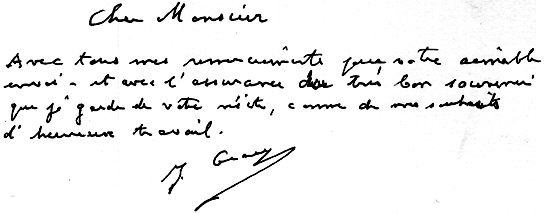 Cher Monsieur
Avec tous mes remerciements pour votre aimable
envoi - et avec l'assurance du très bon souvenir
que j'garde de votre visite, comme de mes souhaits
d'heureux travail.
J.